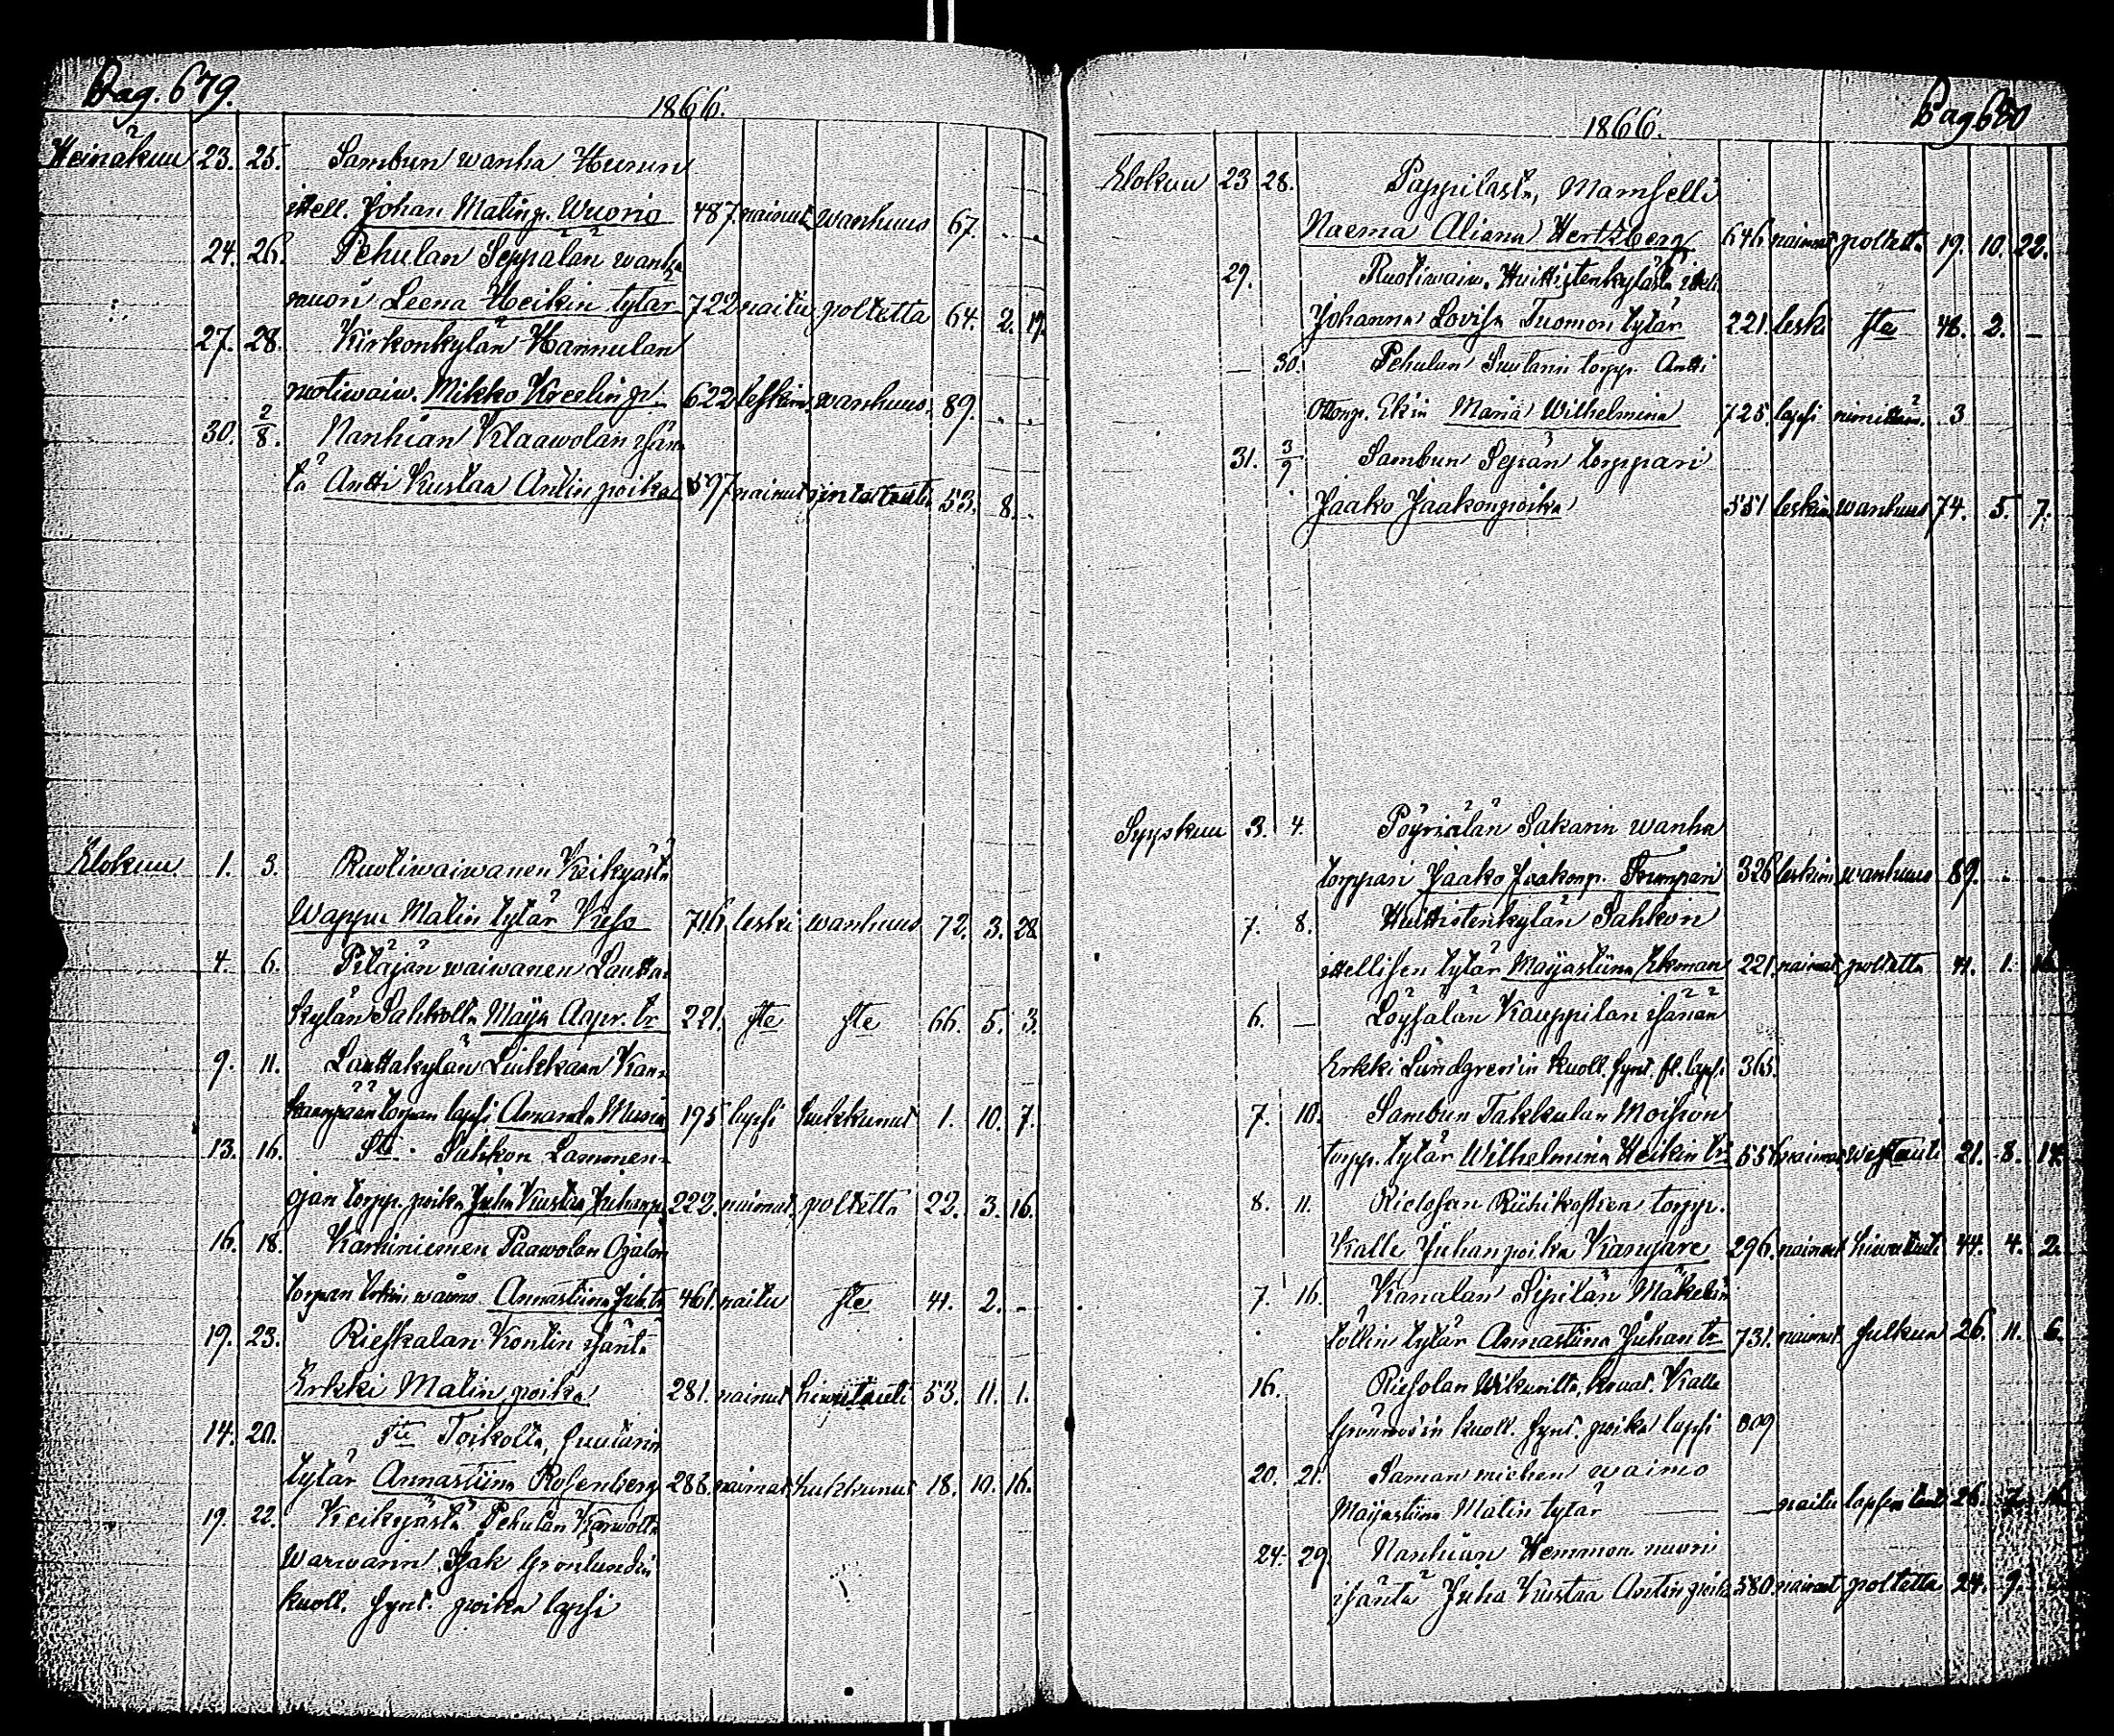 Pag. 679.
1866.
Heinäkuu 23. 25. Sambun wanha Hurun
itsell. Johan Matinp. Wuorio 487. nainut wanhuus 67. . .
24. 26. Pehulan Seppälän wanha
muori Leena Heikin tytär 722 naitu poltetta 64. 2. 17.
27. 28. Kirkonkylän Hannulan
ruotiwaiw. Mikko Kreelin p. 622 leskim. wanhuus. 89. . .
30. 2/8. Nanhian Klaawolan isän
tä Antti Kustaa Antin poika 597 nainut rintatauti 53. 8. .
Elokuu 1. 3. Ruotiwaiwanen Keikyästä
Wappu Matin tytär Kieso 716 leski wanhuus 72. 3. 28
4. 6. Pitäjän waiwanen Lautta
kylän Sahkolta Maija Aapr. tr 221. ste ste 66. 5. 3.
9. 11. Lauttakylän Liukkaan Kan
kaanpään torpan lapsi Amanda Maria 195 lapsi kuihkunut 1. 10. 7.
13. 16. Ste Sahkon Lammen
ojan torpp. poika Juha Kustaa Juhanp. 222. naimat. poltetta 22. 3. 16.
16. 18. Karhiniemen Paawolan Ojalan
torpan waimo Annastiina Juh. tr 461. naitu ste 41. 2. -
19. 23. Rieskalan Kontin isäntä
Erkki Matin poika 281. nainut hiwutauti 53. 11. 1.
14. 20. Ste Toikolta, suutarin
tytär Annastiina Rosenberg 283. naimat. kuihkunut 18. 10. 16.
19. 22. Keikyästä Pehulan Karwolta
Warwarin Isak Grönlundin
kuoll. synt. poika lapsi
Pag 680
1866.
Elokuu 23 28. Pappilasta, Mamselli
Naema Aliana Hertzberg 646 naimat poltetta 19. 10. 22.
29. Ruotiwaiw. Huittistenkylästä itsell.
Johanna Lovisa Tuomon tytär 221. leski ste 48. 2. -
- 30. Pehulan Suutarin torpp. Antti
Ottonp. Ekin Maria Wilhelmina 725. lapsi nimittäm. 3
31. 3/9 Sambun Sepän torppari
Jaako Jaakonpoika 551 leskim. wanhuus 74. 5. 7.
Syyskuu 3. 4. Pöyriälän Sakarin wanha
torppari Jaako Jaakonp. Trumpari 326 leskim wanhuus 89. . .
7. 8. Huittistenkylän Sahkon
itsellisen tytär Maijastiina Ekman 221. naimat poltetta 41. 1.
6. - Löysälän Kauppilan isännän
Erkki Lundgrenin kuoll. synt. lapsi 365.
7. 10. Sambun Takkulan Moision
torpp. tytär Wilhelmina Heikin tr 556 naimat. wesitauti 21. 8. 14.
8. 11. Riesolan Riihikosken torpp.
Kalle Juhanpoika Kanjare 296. nainut hiwutauti 44. 4. 2.
7. 16. Kanalan Sipilän Mäkelän
töllin tytär Annastiina Juhan tr 731. naimat. halkun 26. 11. 6.
16. Riesolan Wikurilta, kruut. Kalle
Grönroosin kuoll. synt. poika lapsi 309
20. 21. Saman miehen waimo
Maijastiina Matin tytär - - naitu lapsen tauti 26. 7. 16
24. 29. Nanhian Hemmon nuori
isäntä Juha Kustaa Antin poika 580. naimat poltetta 24. 9.